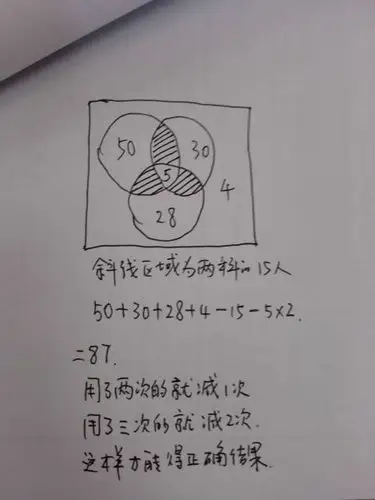 50
30
5
4
28
斜线区域为两科的15人
50+30+28+4-15-5×2.
=87.
用了两次的就减1次
用了三次的就减2次.
这样才能得正确结果.